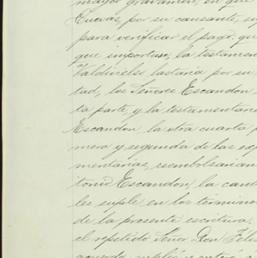 mayor gravamen, en que
Cuevas por su causante, su
para verificar el pago, que
que importen, la testamen
Valdivielso lastaria por su
tad, los Señores Escandon
ta parte, y la testamentaria
Escandon la otra cuarta p
mero y segunda de las re
mentarias, reembolsarian
tonio Escandon, la cant
les suple en los términos
de la presente escritura,
el repetido Señor Don Feli
acuerdo suplir